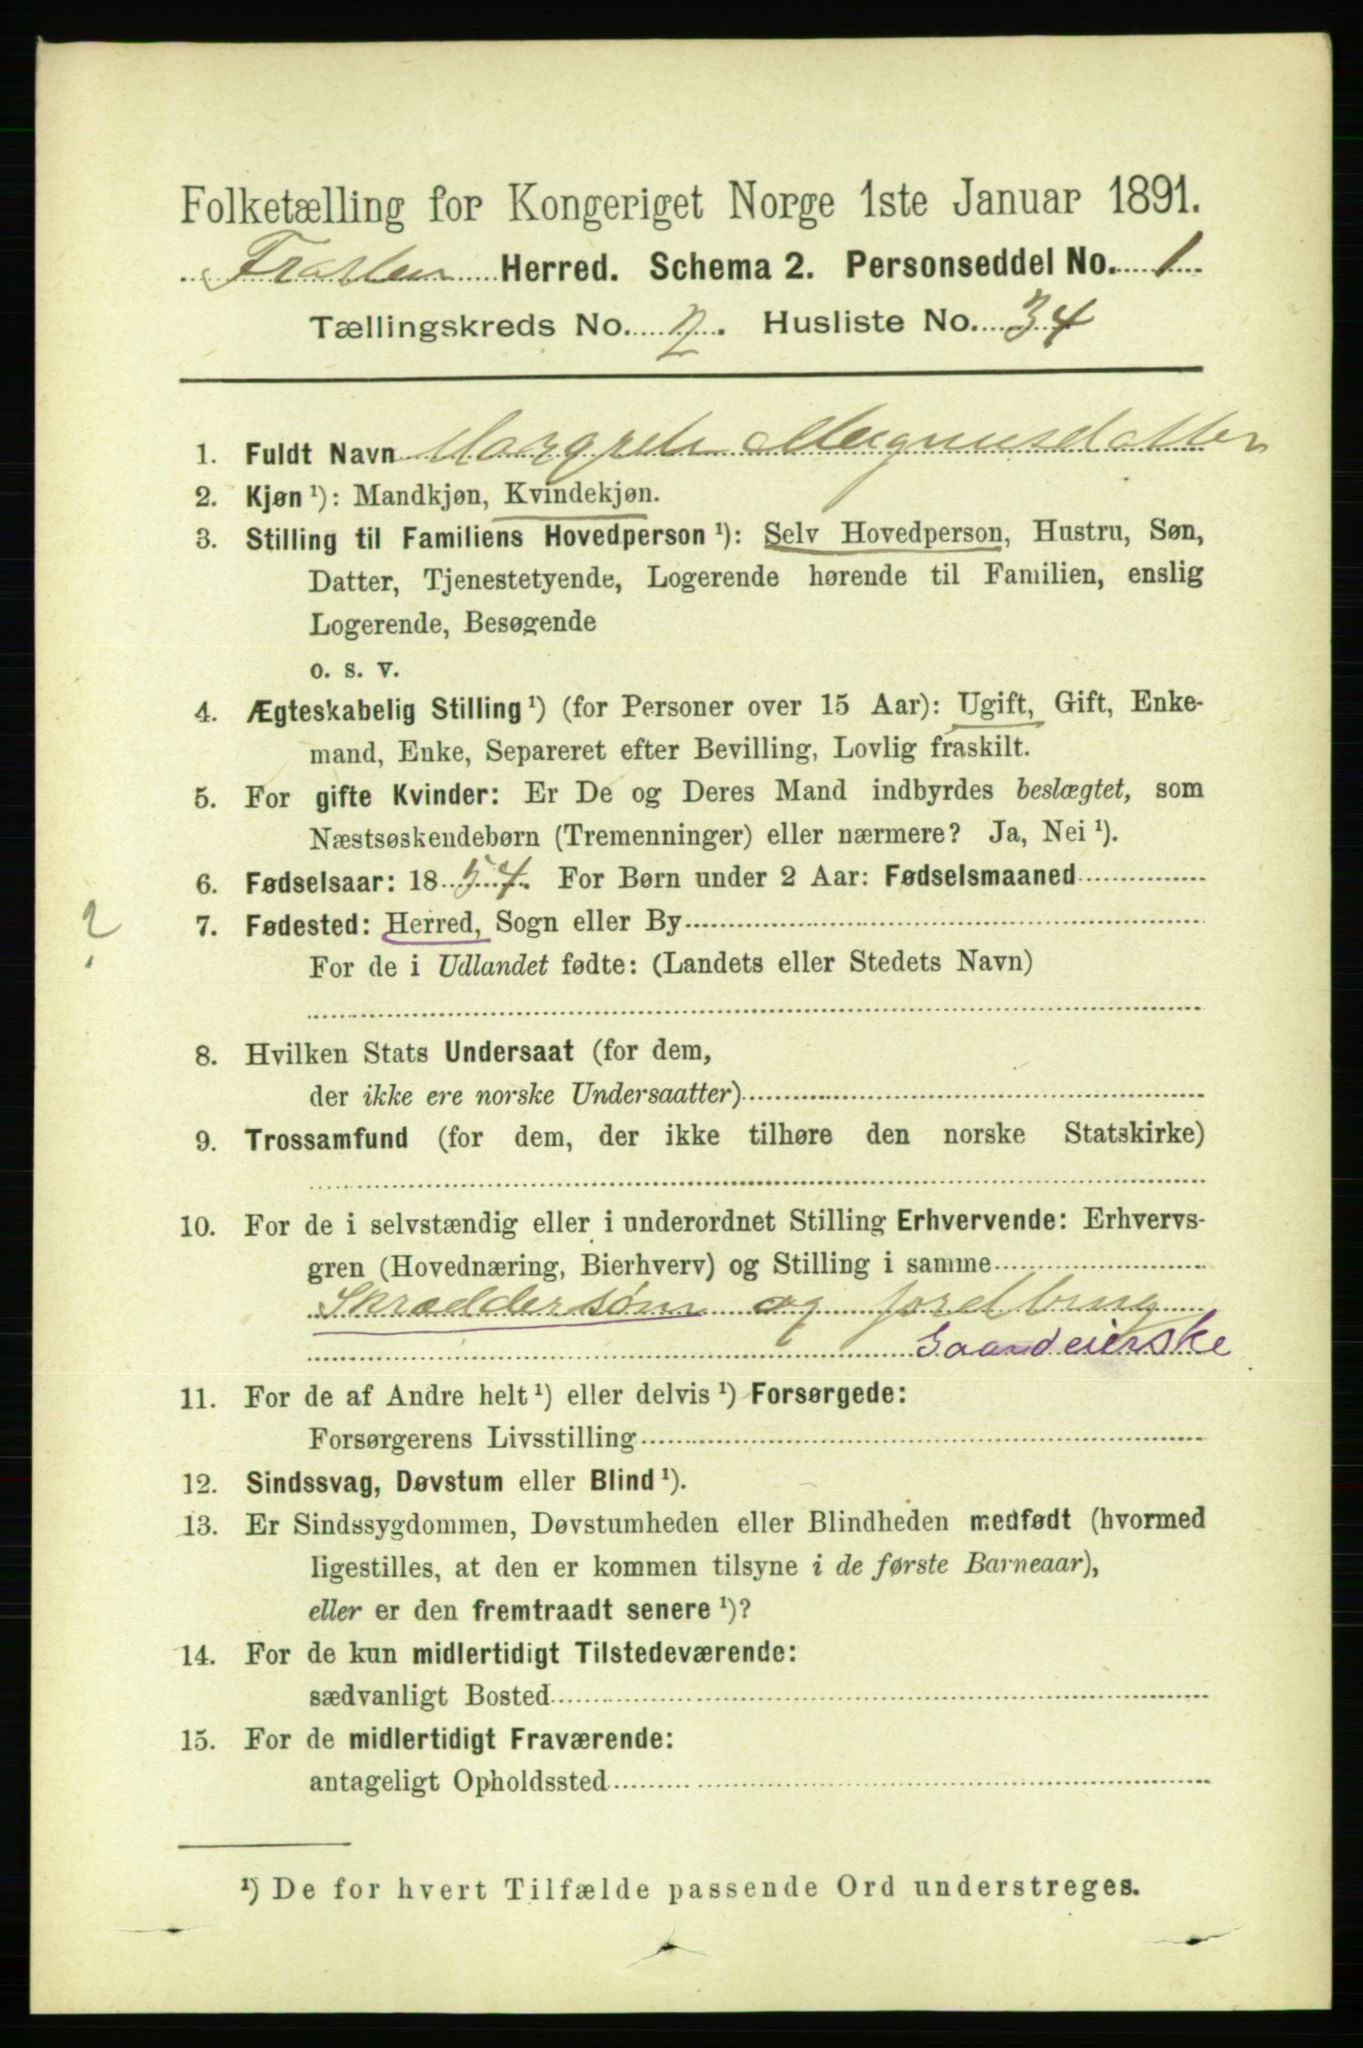 Folketælling for Kongeriget Norge 1ste Januar 1891.
Frosten Herred. Schema 2. Personseddel No. 1
Tællingskreds No. 7. Husliste No. 34
1. Fuldt Navn Margrete Magnusdatter
2. Kjøn ¹): Mandkjøn, Kvindekjøn.
3. Stilling til Familiens Hovedperson ¹): Selv Hovedperson, Hustru, Søn,
Datter, Tjenestetyende, Logerende hørende til Familien, enslig
Logerende, Besøgende
o. s. v.
4. Ægteskabelig Stilling ¹) (for Personer over 15 Aar): Ugift, Gift, Enke-
mand, Enke, Separeret efter Bevilling, Lovlig fraskilt.
5. For gifte Kvinder: Er De og Deres Mand indbyrdes beslægtet, som
Næstsøskendebørn (Tremenninger) eller nærmere? Ja, Nei ¹).
6. Fødselsaar: 1857. For Børn under 2 Aar: Fødselsmaaned
?
7. Fødested: Herred, Sogn eller By
For de i Udlandet fødte: (Landets eller Stedets Navn)
8. Hvilken Stats Undersaat (for dem,
der ikke ere norske Undersaatter)
9. Trossamfund (for dem, der ikke tilhøre den norske Statskirke)
10. For de i selvstændig eller i underordnet Stilling Erhvervende: Erhvervs-
gren (Hovednæring, Bierhverv) og Stilling i samme
Skræddersøm og jordbrug
Gaardeierske
11. For de af Andre helt ¹) eller delvis ¹) Forsørgede:
Forsørgerens Livsstilling
12. Sindssvag, Døvstum eller Blind ¹).
13. Er Sindssygdommen, Døvstumheden eller Blindheden medfødt (hvormed
ligestilles, at den er kommen tilsyne i de første Barneaar),
eller er den fremtraadt senere ¹)?
14. For de kun midlertidigt Tilstedeværende:
sædvanligt Bosted
15. For de midlertidigt Fraværende:
antageligt Opholdssted
¹) De for hvert Tilfælde passende Ord understreges.